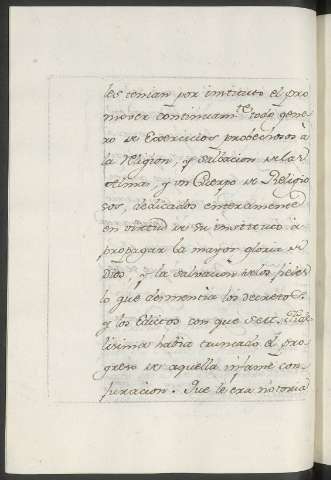 les tenian por instituto el pro
mover continuam.te todo gene
ro de Exercicios probechosos à
la religion, y salbacion de las
Almas, y un Cuerpo de Religio
sos, dedicados enteramente
en virtud de su instituto à
propagar la mayor gloria de
Dios, y la salvacion de los fieles
lo que desmentia los decretos
y los Edictos con que S.
lisima habia truncado el pro
greso de aquella infame con
juracion. Que le era notoria